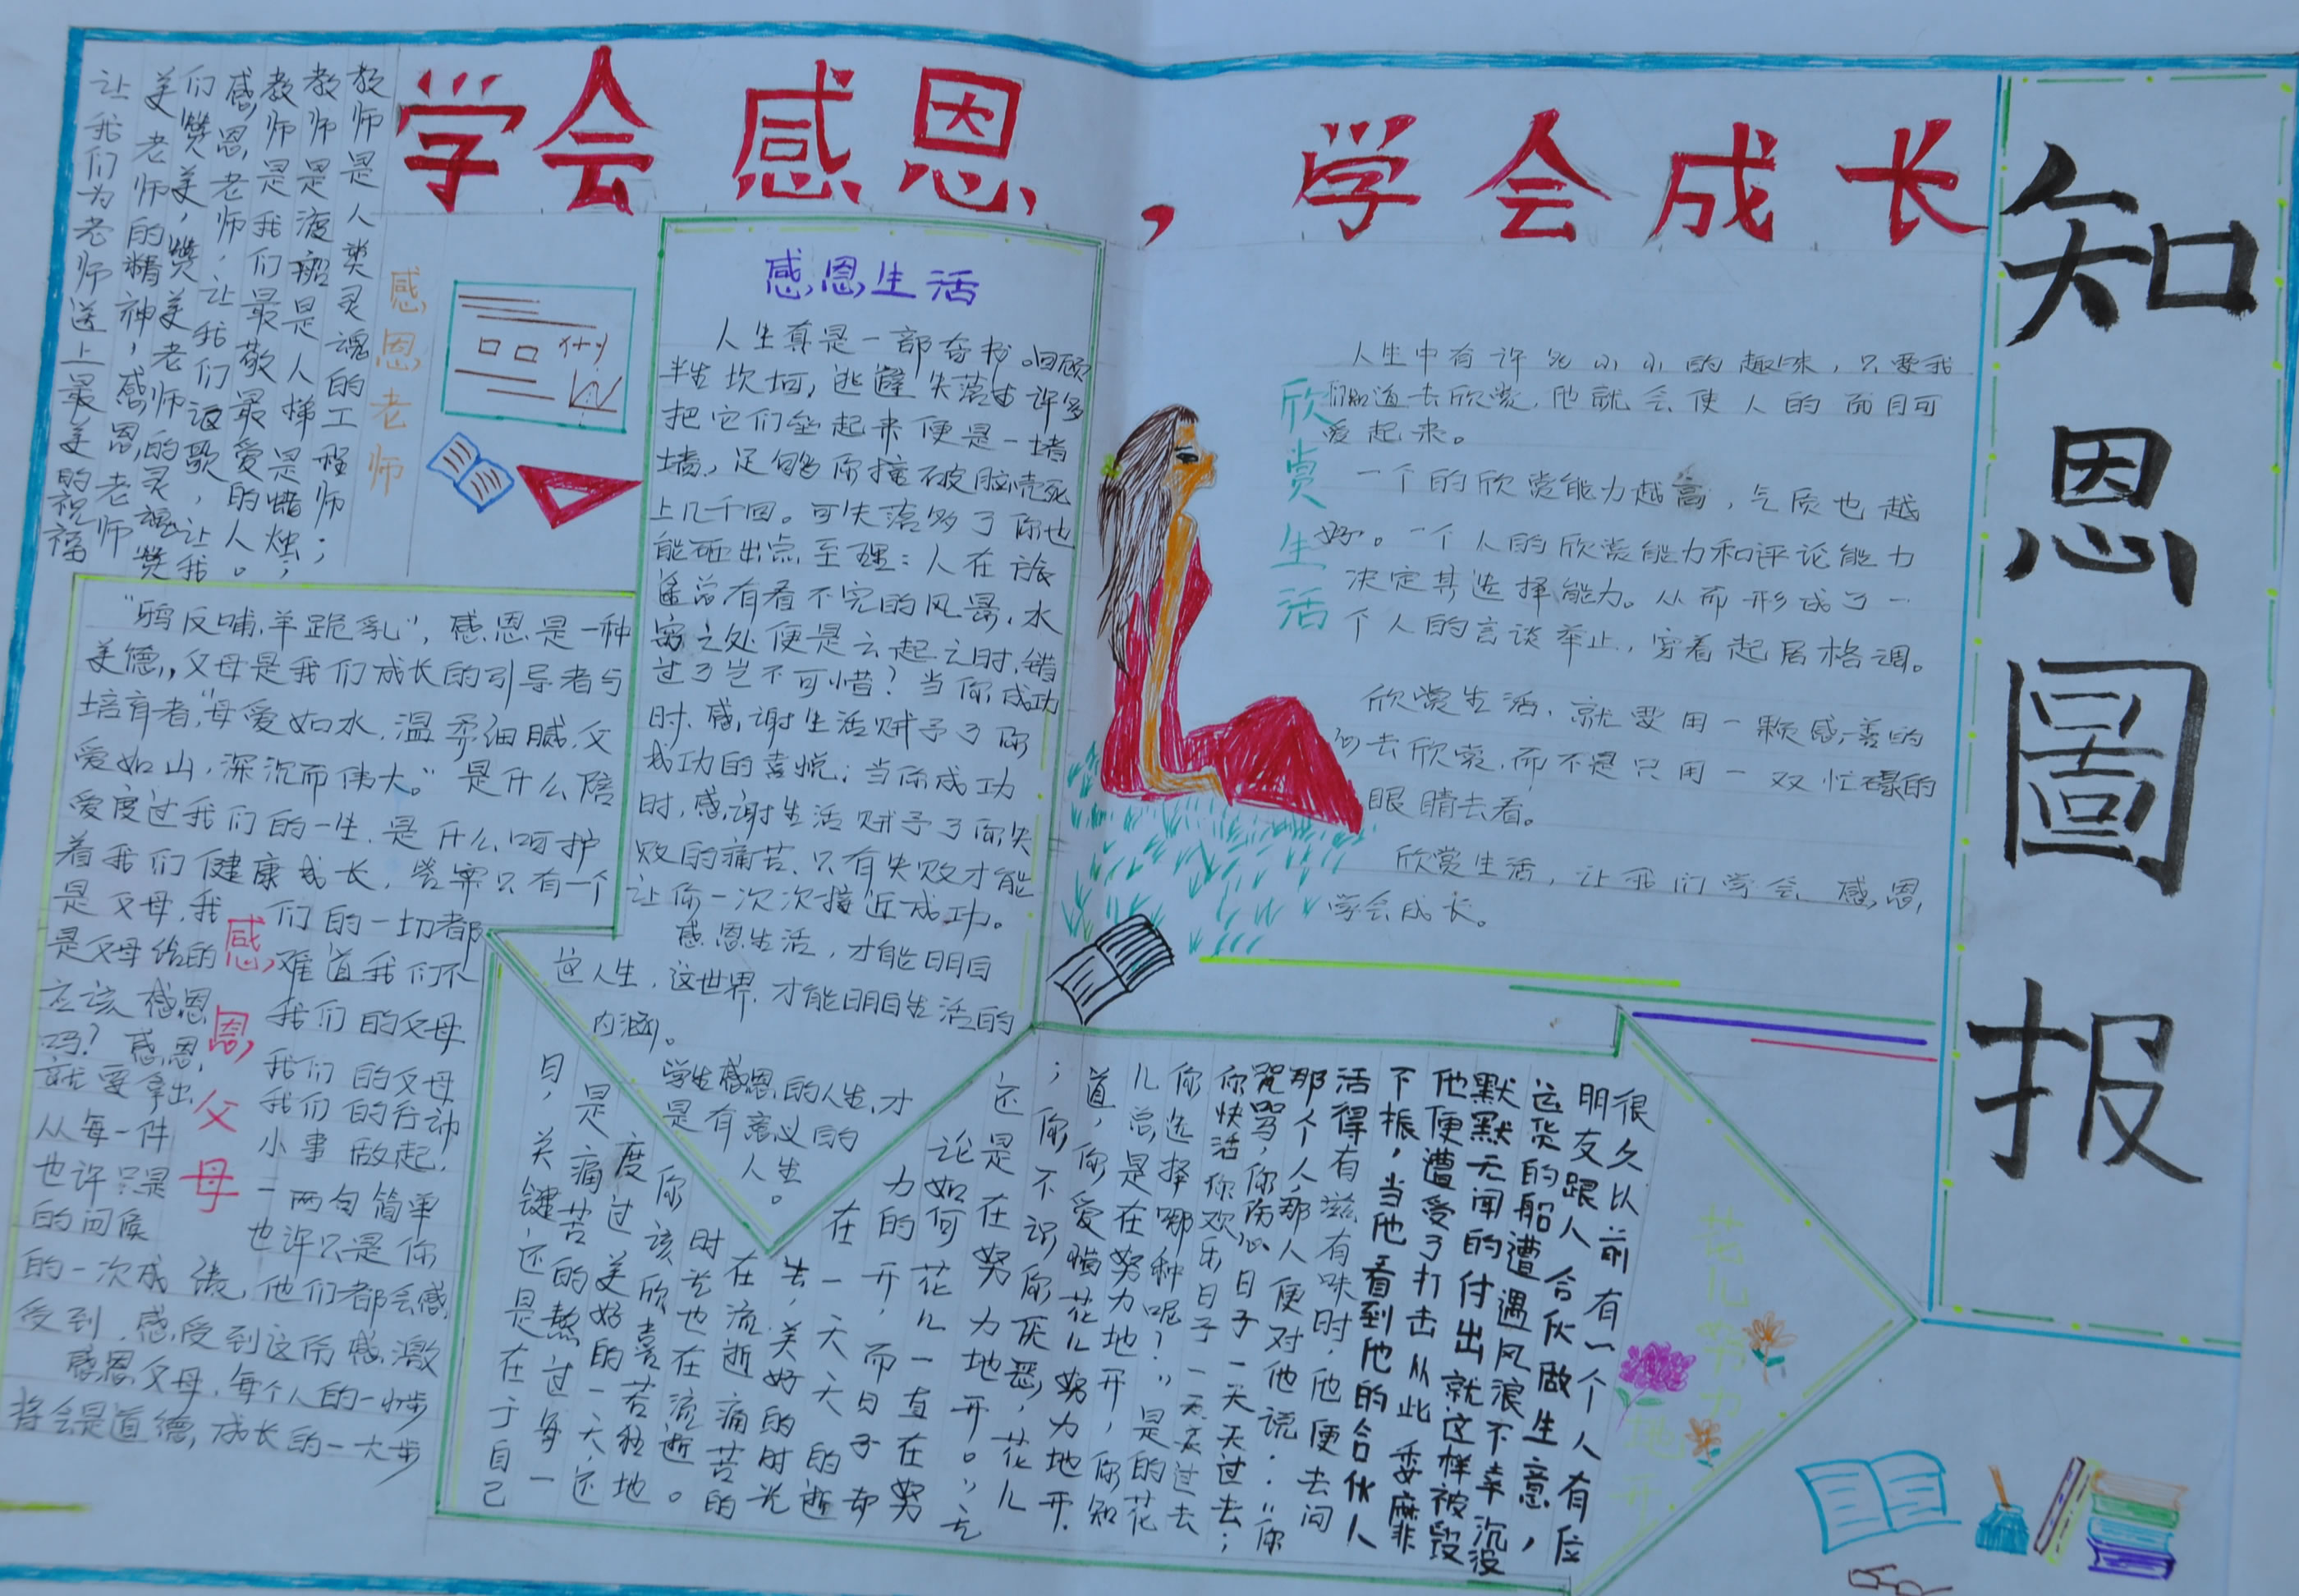 学会感恩，学会成长
知恩圖报
感恩老师
教师是人类灵魂的工程师；
教师是渡船是人梯是蜡烛；
教师是我们最敬最爱的人。
感恩老师，让我们讴歌，让我
们赞美，赞美老师的灵魂赞
美老师的精神，感恩老师
让我们为老师送上最美的祝福
感恩生活
人生真是一部奇书。回顾
半生坎坷，逃避失落由许多
把它们垒起来便是一堵
墙，足够你撞破脑壳死
上几千回。可失落多了你也
能砸出点至理：人在旅
途总有看不完的风景，水
穷之处便是云起之时，错
过了岂不可惜？当你成功
时，感谢生活赋予了你
成功的喜悦；当你成功
时，感谢生活赋予了你失
败的痛苦，只有失败才能
让你一次次接近成功。
感恩生活，才能明白
这人生，这世界，才能明白生活的
内涵。
学生感恩的人生，才
是有意义的
人生。
欣赏生活
人生中有许多小小的趣味，只要我
们知道去欣赏，他就会使人的面目可
爱起来。
一个的欣赏能力越高，气质也越
好。一个人的欣赏能力和评论能力
决定其选择能力。从而形成了一
个人的言谈举止，穿着起居格调。
欣赏生活，就要用一颗感善的
心去欣赏，而不是只用一双忙碌的
眼睛去看。
欣赏生活，让我们学会感恩，
学会成长。
感恩父母
“鸦反哺，羊跪乳”，感恩是一种
美德，父母是我们成长的引导者与
培育者，“母爱如水，温柔细腻，父
爱如山，深沉而伟大。”是什么陪
爱度过我们的一生，是什么呵护
着我们健康成长，答案只有一个
是父母，我们的一切都
是父母给的，难道我们不
应该感恩我们的父母
吗？感恩我们的父母
就要拿出我们的行动
从每一件小事做起，
也许只是一两句简单
的问候也许只是你
的一次成绩，他们都会感
受到，感受到这份感激
感恩父母，每个人的一小步
将会是道德，成长的一大步
花儿努力地开
很久以前有一个人有位
朋友跟人合伙做生意，
运货的船遭遇风浪不幸沉没
默默无闻的付出就这样被毁
他便遭受了打击从此委靡
下振，当他看到他的合伙人
活得有滋有味时，他便去问
那个人，那人便对他说：“你
咒骂，你伤心日子一天天过去；
你快活你欢乐日子一天天过去
你选择哪种呢？”是的花
儿总是在努力地开，你知
道，你爱惜花儿努力地开，
；你不识你厌恶，花儿
还是在努力地开。”无
论如何花儿一直在努
力的开，而日子却
在一天天的逝
去，美好的时光
在流逝痛苦的
时光也在流逝。
你该欣喜若狂地
度过美好的一天，还
是痛苦的熬过每一
日，关键还是在于自己